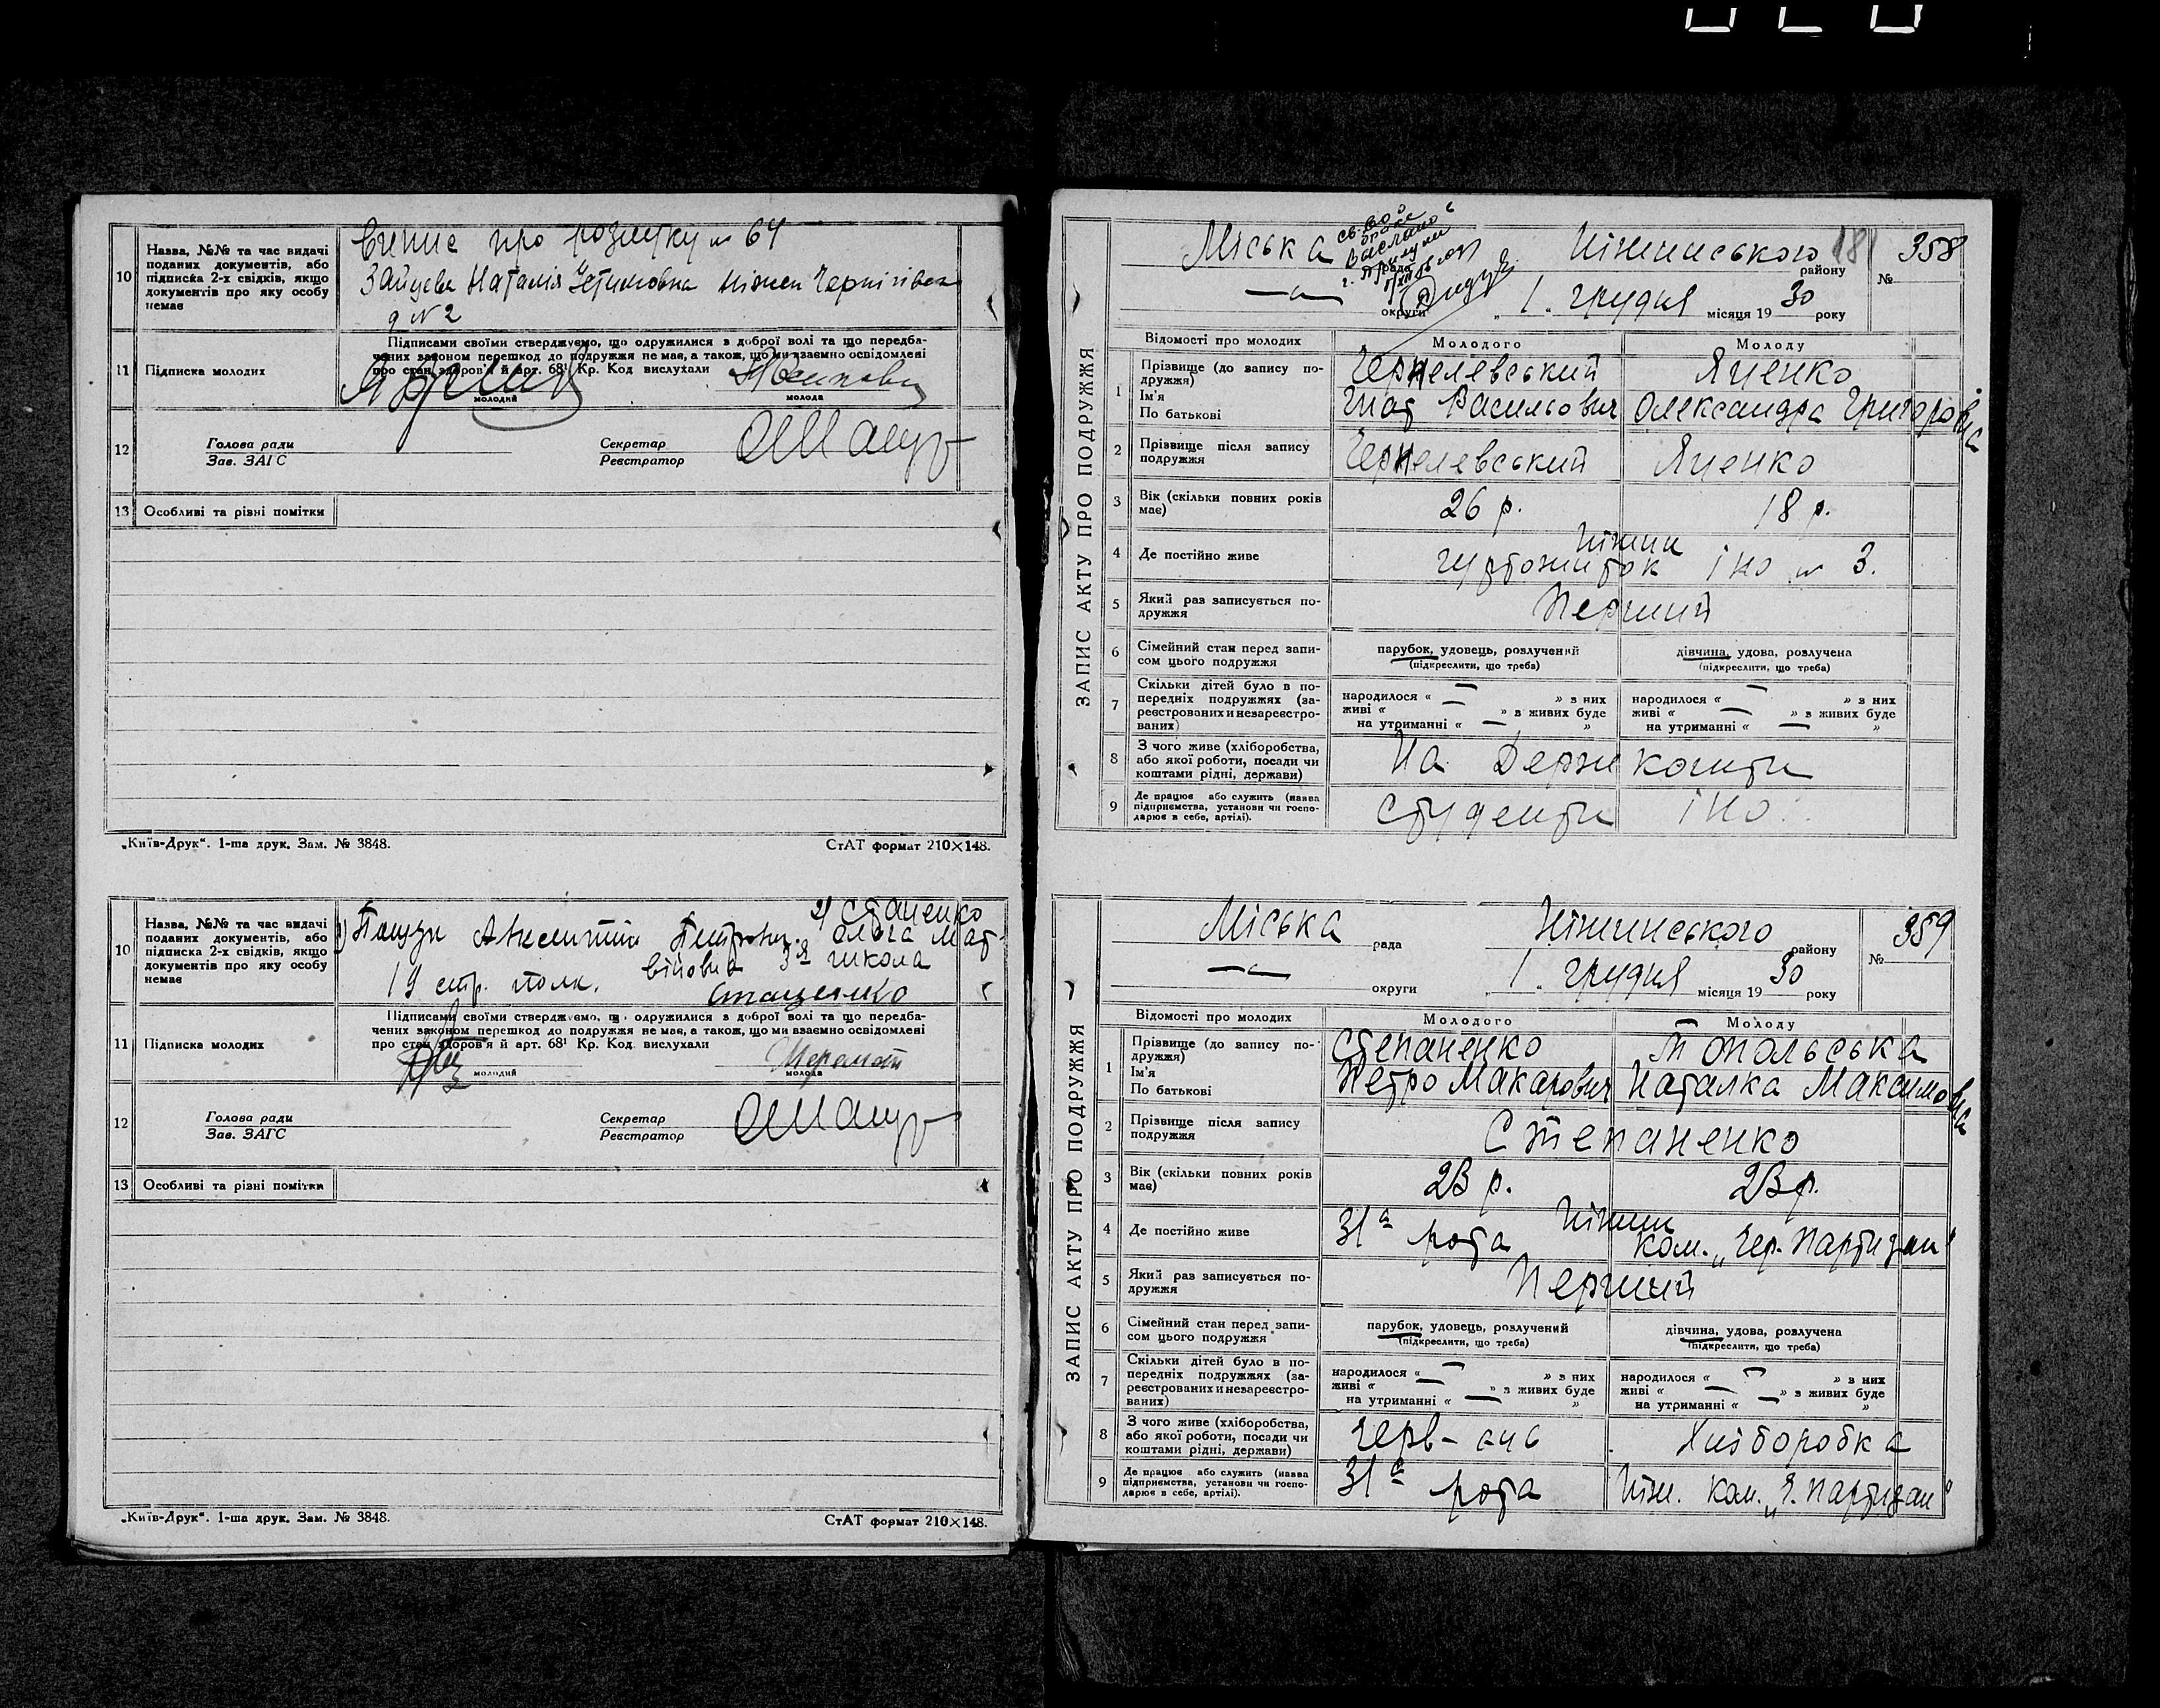 10
Назва, №№ та час видачі
поданих документів, або
підписка 2-х свідків, якщо
документів про яку особу
немає
Випис про розлуку № 64
Зайцева Наталія Устиновна Ніжен Чернігівська
д № 2
11
Підписка молодих
Підписами своїми стверджуємо, що одружилися з доброї волі та що передба-
чених законом перешкод до подружжя не має, а також, що ми взаємно освідомлені
про стан здоров'я й арт. 68¹ Кр. Код вислухали
молодий
молода
12
Голова ради
Зав. ЗАГС
Секретар
Реєстратор
13
Особливі та різні помітки
„Київ-Друк“. 1-ша друк. Зам. № 3848.
СтАТ формат 210×148.
10
Назва, №№ та час видачі
поданих документів, або
підписка 2-х свідків, якщо
документів про яку особу
немає
2) Стаценко
Ольга Мат-
війовна 3я школа
19 стр. полк.
Стаценко
11
Підписка молодих
Підписами своїми стверджуємо, що одружилися з доброї волі та що передба-
чених законом перешкод до подружжя не має, а також, що ми взаємно освідомлені
про стан здоров'я й арт. 68¹ Кр. Код вислухали
молодий
молода
12
Голова ради
Зав. ЗАГС
Секретар
Реєстратор
13
Особливі та різні помітки
„Київ-Друк“. 1-ша друк. Зам. № 3848.
СтАТ формат 210×148.
ЗАПИС АКТУ ПРО ПОДРУЖЖЯ
Міська рада Ніжинського району 181 № 358
округи „ 1 „ грудня місяця 1930 року
св-во о
браке
выслано в
г. Прилуки
Відомості про молодих
Молодого
Молоду
1
Прізвище (до запису по-
дружжя)
Ім'я
По батькові
Чернелевський
Гнат Васильович
Яценко
Олександра Григоровна
2
Прізвище після запису
подружжя
Чернелевський
Яценко
3
Вік (скільки повних років
має)
26 р.
18 р.
4
Де постійно живе
Ніжин
гуртожиток ІНО № 3.
5
Який раз записується по-
дружжя
Перший
6
Сімейний стан перед запи-
сом цього подружжя
парубок, удовець, розлучений
(підкреслити, що треба)
дівчина, удова, розлучена
(підкреслити, що треба)
7
Скільки дітей було в по-
передніх подружжях (за-
реєстрованих и незареєстро-
ваних)
народилося « — » з них
живі « — » з живих буде
на утриманні « — »
народилося « — » з них
живі « — » з живих буде
на утриманні « — »
8
З чого живе (хліборобства,
або якої роботи, посади чи
коштами рідні, держави)
На Держ кошти
9
Де працює або служить (назва
підприємства, установи чи госпо-
дарює в себе, артілі).
Студенти ІНО.
ЗАПИС АКТУ ПРО ПОДРУЖЖЯ
Міська рада Ніжинського району № 359
округи „ 1 „ грудня місяця 1930 року
Відомості про молодих
Молодого
Молоду
1
Прізвище (до запису по-
дружжя)
Ім'я
По батькові
Степаненко
Петро Макарович
Топольська
Наталка Максимовна
2
Прізвище після запису
подружжя
Степаненко
3
Вік (скільки повних років
має)
23 р.
23 р.
4
Де постійно живе
Ніжин
31а рота
ком. „Чер. Партизан“
5
Який раз записується по-
дружжя
Перший
6
Сімейний стан перед запи-
сом цього подружжя
парубок, удовець, розлучений
(підкреслити, що треба)
дівчина, удова, розлучена
(підкреслити, що треба)
7
Скільки дітей було в по-
передніх подружжях (за-
реєстрованих и незареєстро-
ваних)
народилося « — » з них
живі « — » з живих буде
на утриманні « — »
народилося « — » з них
живі « — » з живих буде
на утриманні « — »
8
З чого живе (хліборобства,
або якої роботи, посади чи
коштами рідні, держави)
Хліборобка
9
Де працює або служить (назва
підприємства, установи чи госпо-
дарює в себе, артілі).
31а рота
Ніж. ком. „Ч. Партизан“